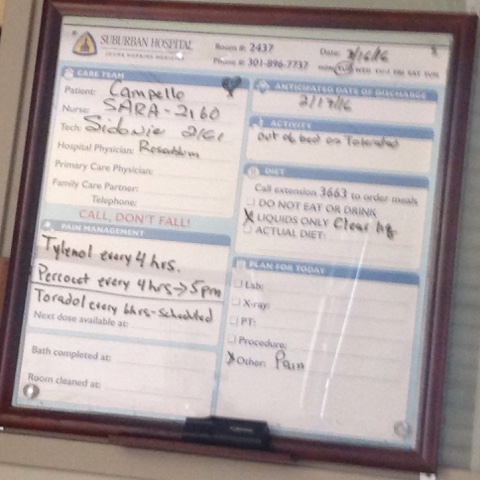 SUBURBAN HOSPITAL
JOHNS HOPKINS MEDICINE
Room #: 2437
Phone #: 301-896-7737
Date: 2/16/16
MON TUE WED THU FRI SAT SUN
CARE TEAM
Patient: Campello
Nurse: SARA - 2160
Tech: Sidonie 2161
Hospital Physician: Rosenblum
Primary Care Physician:
Family Care Partner:
Telephone:
CALL, DON'T FALL!
PAIN MANAGEMENT
Tylenol every 4 hrs.
Percocet every 4 hrs → 5pm
Toradol every 6hrs - scheduled
Next dose available at:
Bath completed at:
Room cleaned at:
ANTICIPATED DATE OF DISCHARGE
2/17/16
ACTIVITY
out of bed as Tolerated
DIET
Call extension 3663 to order meals
DO NOT EAT OR DRINK
X LIQUIDS ONLY Clear liq
ACTUAL DIET:
PLAN FOR TODAY
Lab:
X-ray:
PT:
Procedure:
X Other: Pain